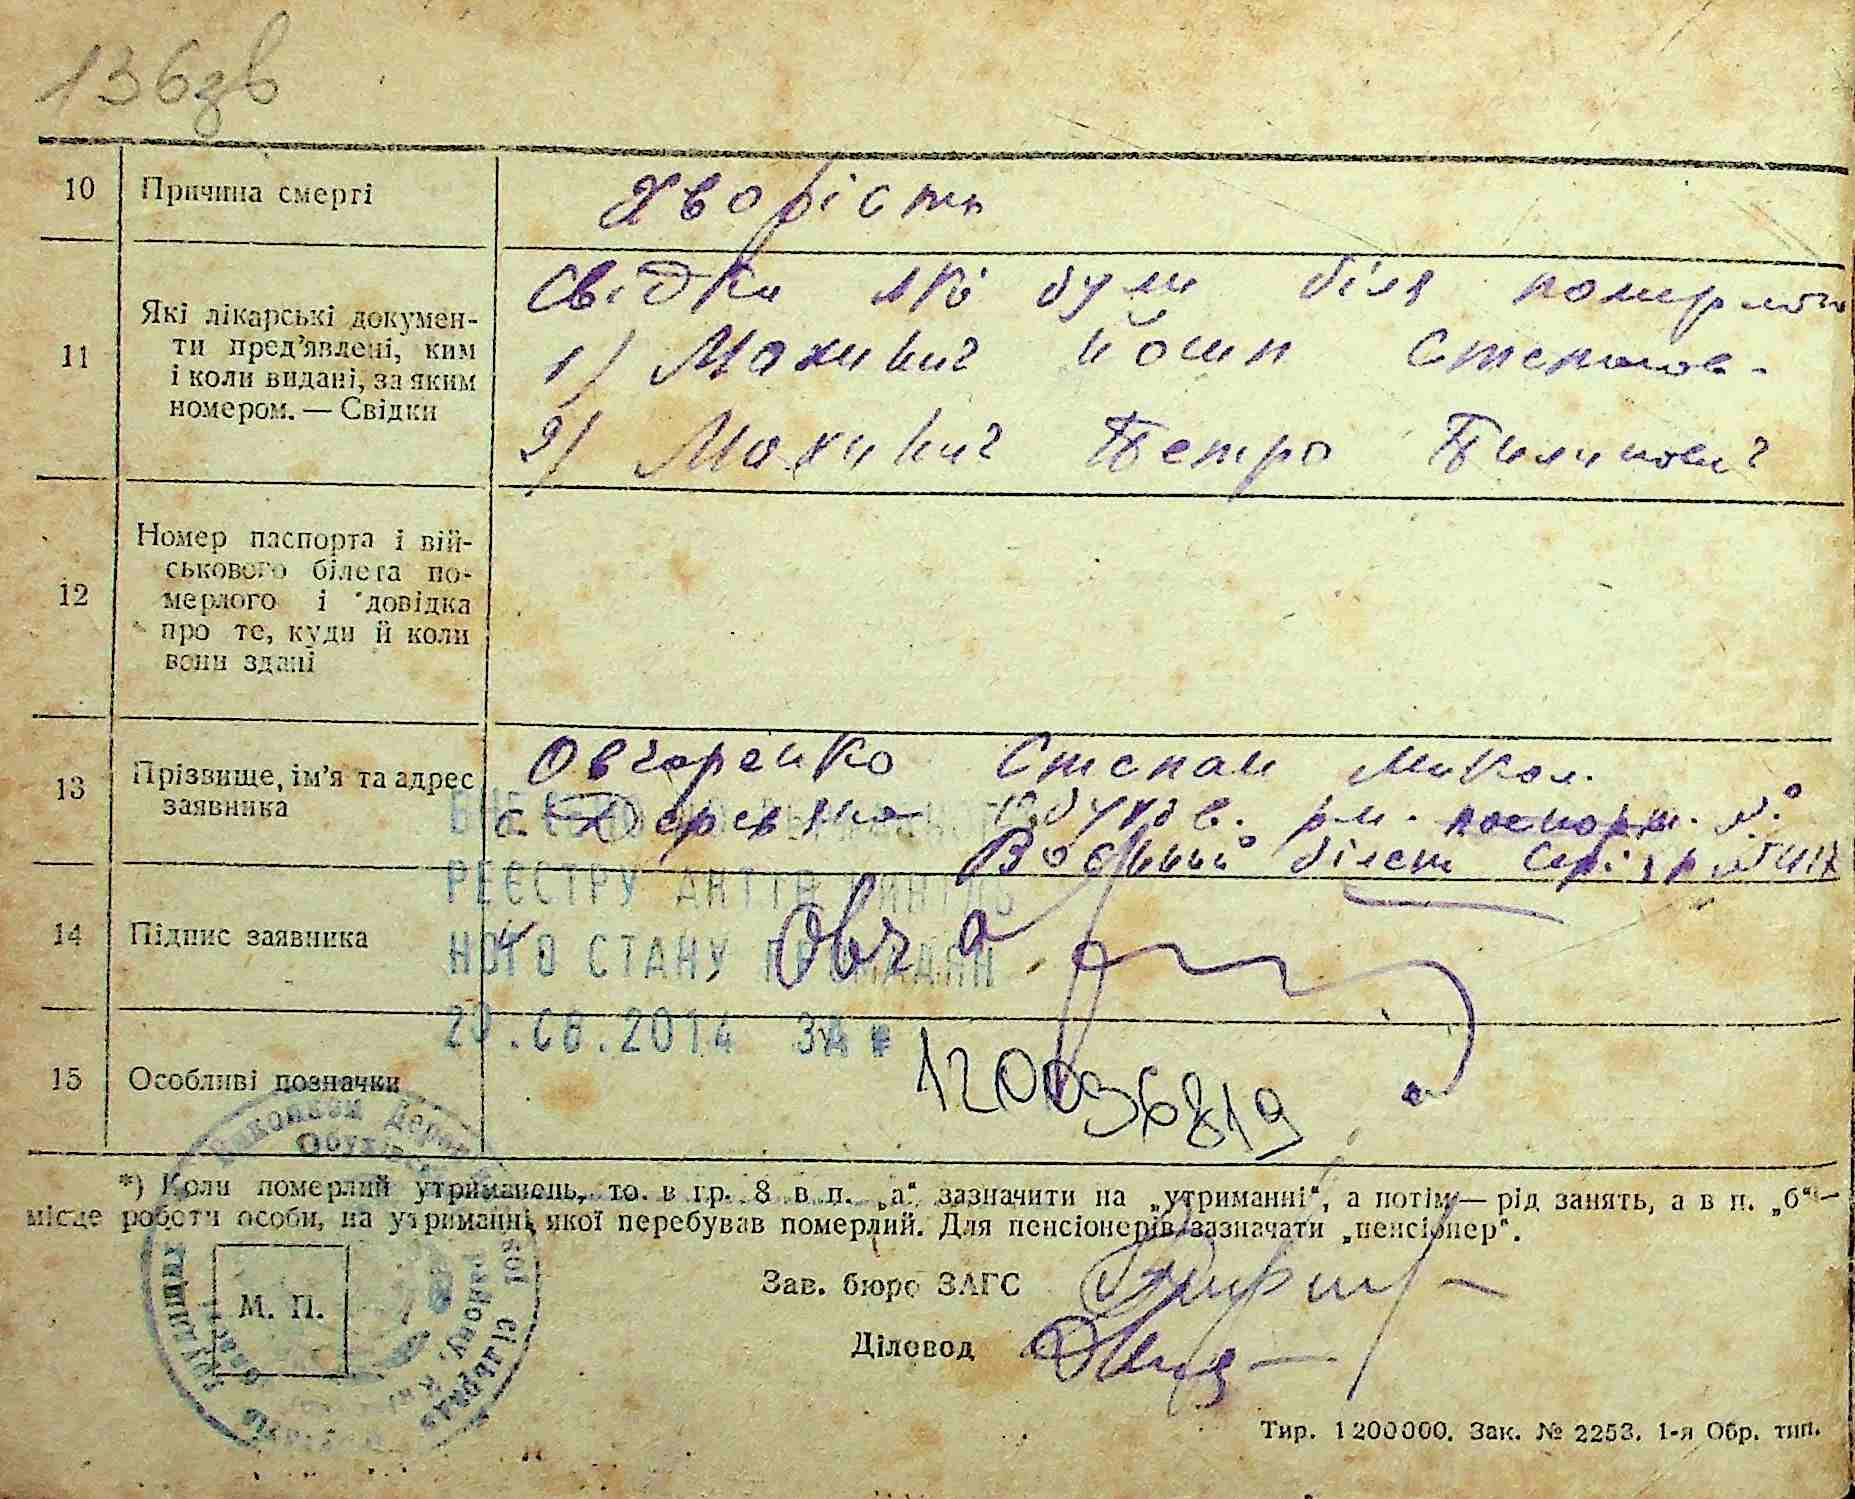 136зв
10 Причина смерті Хворість
11 Які лікарські документи пред'явлені, ким
Свідки які були біля померлого
і коли видані, за яким
1) Махинич Йосип Степанов-
номером. — Свідки
2) Махинич Петро Пилипович
12 Номер паспорта і вій-
ськового білета по-
мерлого і довідка
про те, куди й коли
вони здані
13 Прізвище, ім'я та адрес
заявника
Овчаренко Степан Микол.
с. Деревяна Обухов. рн. паспорт. №
Воєнний білет
14 Підпис заявника
15 Особливі позначки
РЕЄСТРУ АКТІВ
НОГО СТАНУ ГРОМАДЯН
20.08.2014 ЗА №
120036819
*) Коли померлий утриманець, то в гр. 8 в п. „а“ зазначити на „утриманні“, а потім — рід занять, а в п. „б“ —
місце роботи особи, на утриманні якої перебував померлий. Для пенсіонерів зазначати „пенсіонер“.
М. П.
Зав. бюро ЗАГС
Діловод
Тир. 1200000. Зак. № 2253. 1-я Обр. тип.